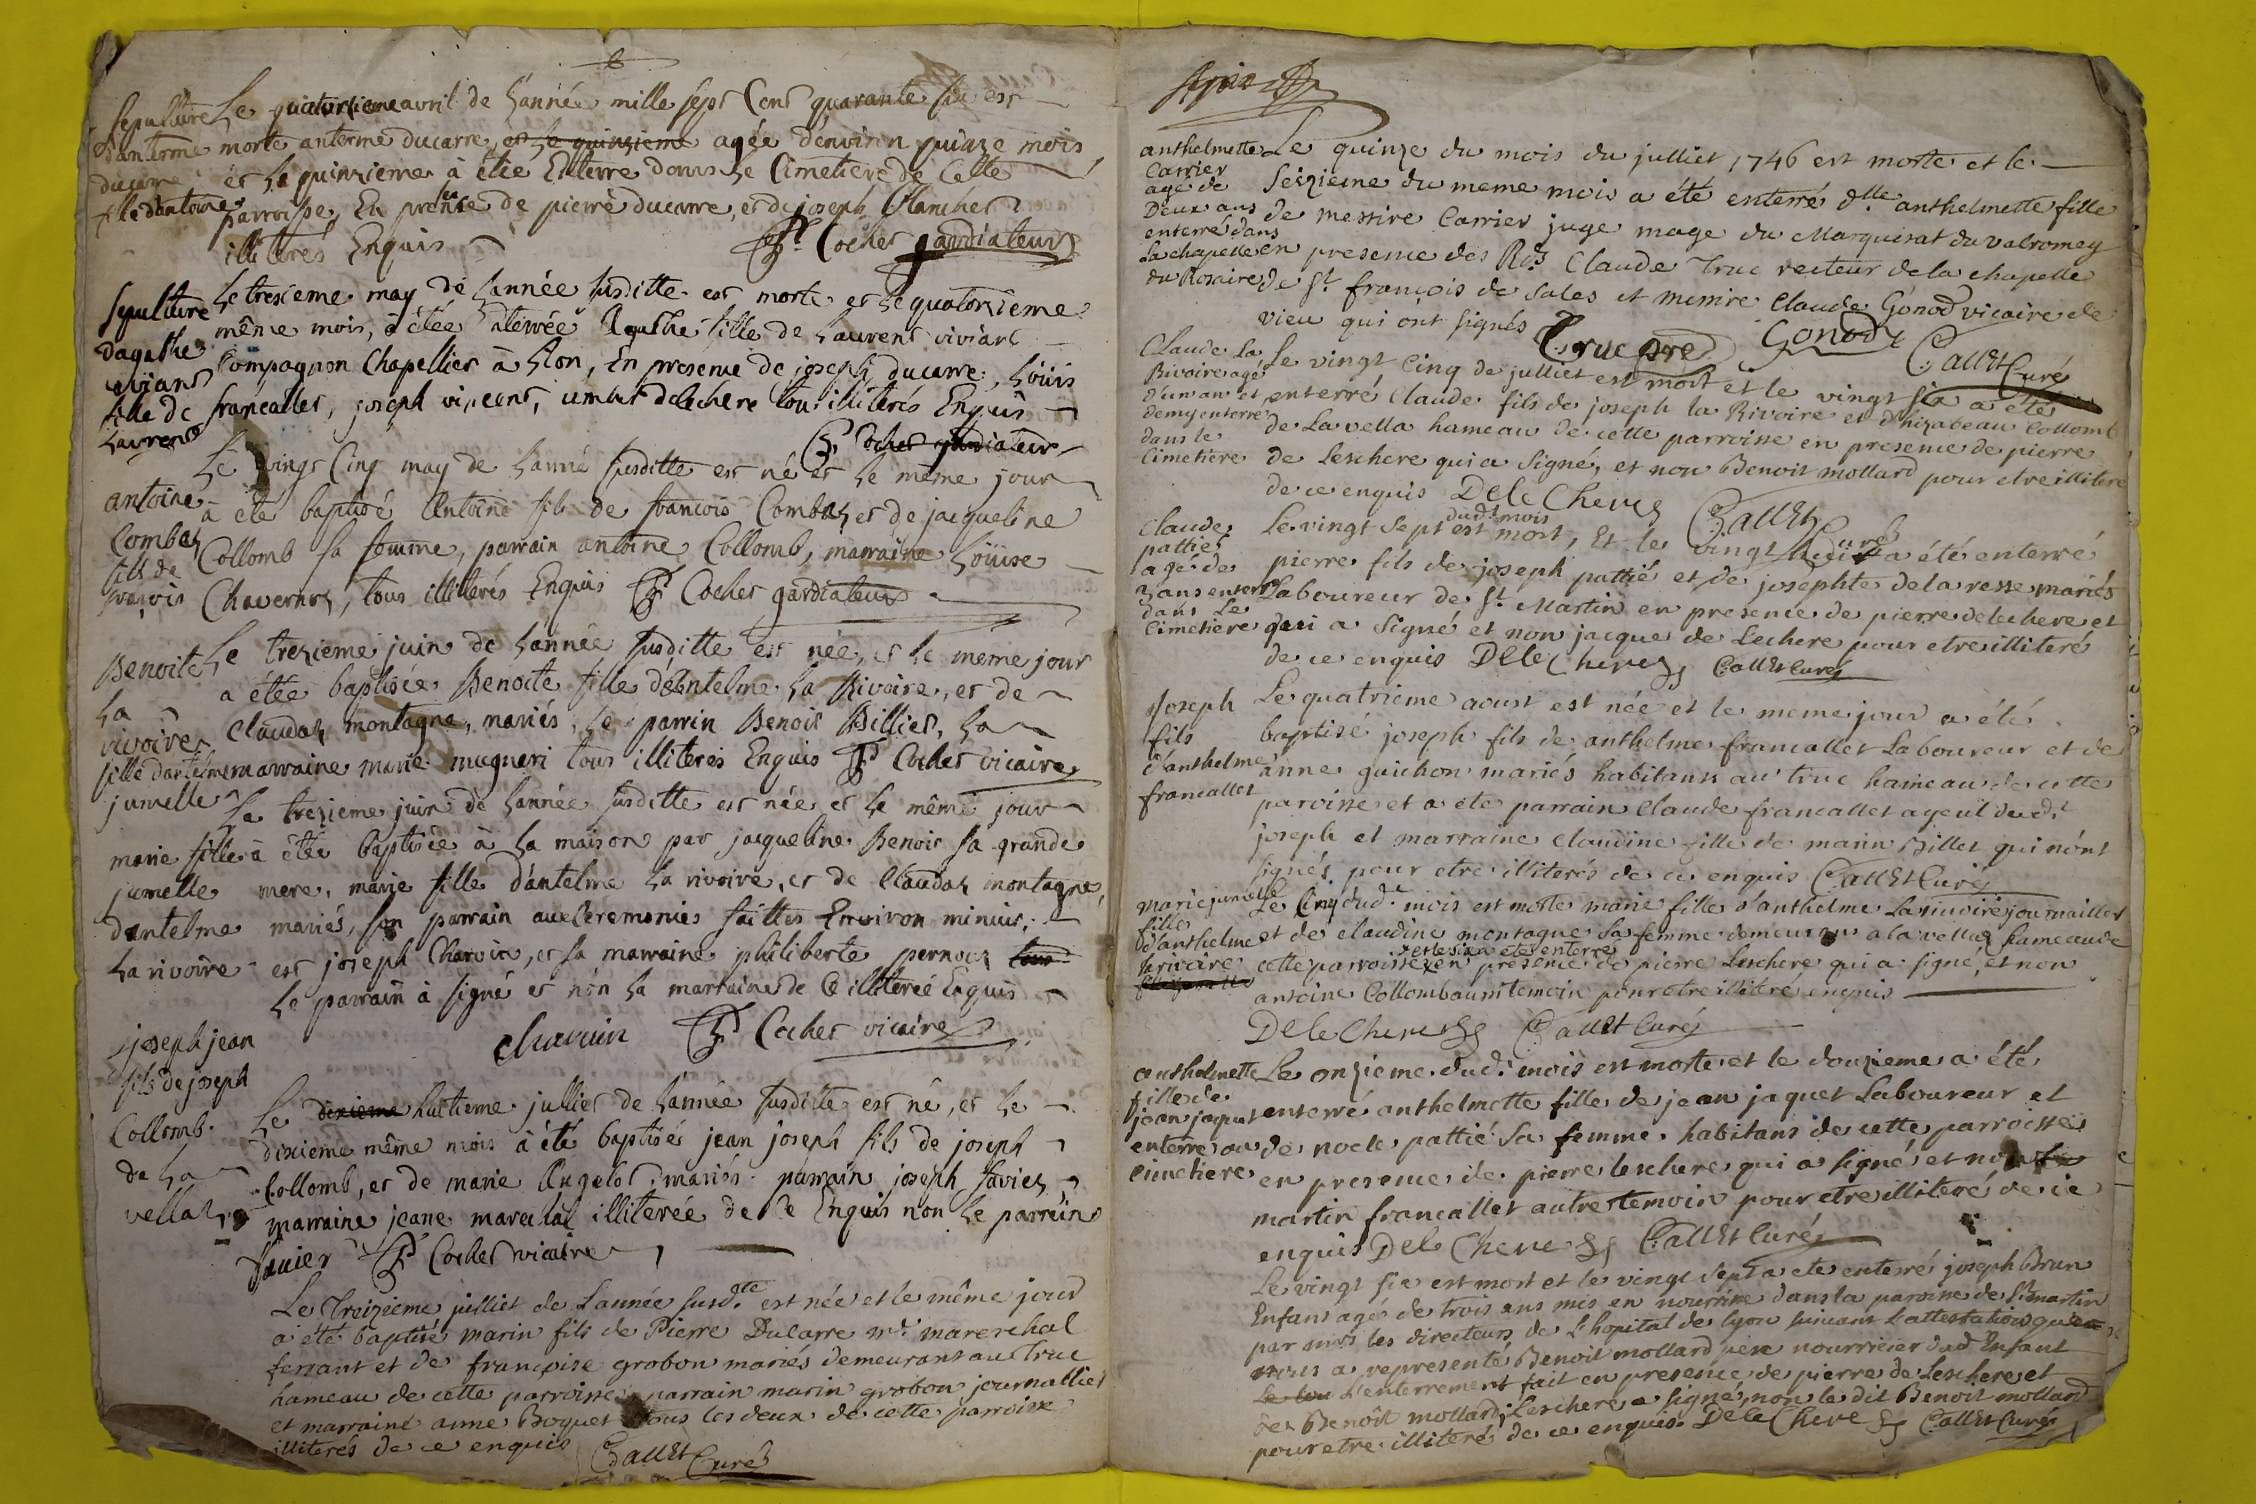 6
Sepulture
danterme
ducarre
fille dantoine
Le quatorsieme avril de Lannée mille sept Cent quarante six est
morte anterme ducarre, et le quinsieme agée d'environ quinze mois
et le quinzieme à étée Enterrée dans le Cimetiere de Cette
parroisse, En presence de pierre ducarre, et de joseph Blanchet
illiterés Enquis fr. Cochet gardiateur
Sepulture
dagathe
viviant
fille de
Laurent
Le tresieme may de Lannée susditte est morte et le quatorsieme
même mois, à étée aterrée Agathe fille de Laurent viviant
Compagnon Chapellier à Lion, En presence de joseph ducarre, Loüis
francallet, joseph vincent, delechere tous illiterés Enquis
fr Cochet gardiateur
antoine
Combaz
fils de
françois
Le vingt Cinq may de Lanné susditte est né et le même jour
a été baptisé Antoine fils de francois Combaz et de jacqueline
Collomb sa femme, parrain antoine Collomb, marraine Loüise
Chavernoz, tous illiterés Enquis fr Cochet gardiateur
Benoite
La
rivoire
fille dantelme
jumelle
Le trezieme juin de Lannée susditte est née, et le meme jour
a étée baptisée Benoite fille d'Antelme La Rivoire, et de
Claudaz montagne, mariés, le parrin Benoit Billiet, La
marraine marie mugneri tous illiterés Enquis fr Cochet vicaire
marie fille
jumelle
dantelme
La rivoire
Le trezieme juin de Lannée susditte est née et le même jour
à étée baptisée à La maison par jacqueline Benoit sa grande
mere, marie fille d'antelme La rivoire, et de Claudaz montagne,
mariés, son parrain aux Ceremonies faittes Environ minuit,
est joseph Charvin, et sa marraine philiberte pernouz tous
Le parrain à signé et non La marraine de Ce illiterée Enquis
charvin fr Cochet vicaire
joseph jean
fils de joseph
Collomb
de La
vellaz
Le dixieme huitieme julliet de Lannée susditte est né, et le
dixieme même mois à été baptisé jean joseph fils de joseph
Collomb, et de marie Angelot, mariés parrain joseph favier,
marraine jeane marechal illiterée de Ce Enquis non le parrein
favier fr Cochet vicaire
Le Treizieme julliet de Lannée susd.tte est née et le même jour
a été baptisé marin fils de Pierre Ducarre m.e marerchal
ferrant et de françoise grobon mariés demeurant au Truc
hameau de cette parroisse parrain marin grobon journallier
et marraine anne Boquet tous les deux de cette parroisse
illiterés de ce enquis Callet Curé
anthelmette
Carrier
age de
Deux ans
enterré dans
La chapelle
du Rosaire
Le quinze du mois du julliet 1746 est morte et le
seizieme du meme mois a été enterré d.lle anthelmette fille
de messire Carrier juge mage du Marquisat du valromey
en presence des R.ds Claude Truc recteur de la chapelle
de S.t françois de Sales et messire Claude Gonod vicaire de
vieu qui ont signés Truc pre Gonod
Callet Curé
Claude La
Rivoire agé
d'un an et
demy enterré
dans le
Cimetiere
Le vingt Cinq de julliet est mort et le vingt six a été
enterré Claude fils de joseph la Rivoire et d'hizabeau Collomb
de La vella hameau de cette parroisse en presence de pierre
de Leschere qui a signé, et non Benoit mollard pour etre illiteré
de ce enquis Dele Chere Callet Curé
Claude
pattié
agé de
ans enterré
dans Le
Cimetiere
Le vingt sept dud.t mois est mort, Et le vingt huit a été enterré
pierre fils de joseph pattié et de josephte de la resse mariés
Laboureur de S.t Martin en presence de pierre delechere et
qui a signé et non jacque de Lechere pour etre illiteré
de ce enquis Dele Chere Callet Curé
Joseph
fils
d'anthelme
francallet
Le quatrieme aoust est née et le meme jour a été
baptisé joseph fils de anthelme francallet Laboureur et de
anne guichon mariés habitans au truc hameau de cette
paroisse et a ete parrain Claude francallet ayeul dud.t
joseph et marraine Claudine fille de marin Billet qui n'ont
signés pour etre illiterés de ce enquis Callet Curé
marie jumelle
fille
d'anthelme
larivoire
Le Cinq dud.t mois est morte marie fille d'anthelme Larivoire journaillier
et de claudine montagne sa femme demeurans a la vellaz hameau de
cette parroisse et le six a eté enterré en presence de pierre Leschere qui a signé, et non
antoine Collomb aurt temoin pour etre illiteré enquis
Dele Chere Callet Curé
anthelmette
fille de
jean jaquet
enterré au
cimetiere
Le onzieme dud.t mois est morte et le douzieme a été
enterré anthelmette fille de jean jaquet Laboureur et
de nocle pattié sa femme habitans de cette parroisse
en presence de pierre leschere qui a signé et non
martin francallet autre temoin pour etre illiteré de ce
enquis Dele Chere Callet Curé
Le vingt six est mort et le vingt sept a ete enterré joseph Brun
Enfant agé de trois ans mis en nourrine dans la paroisse de S.t martin
par mrs les directeurs de L'hopital de lyon suivant L'attestation que
nous a representé Benoit mollard pere nourricier dud. Enfant
L'enterrement fait en presence de pierre de Leschere et
de Benoît mollard, Leschere a signé, non le dit Benoit mollard
pour etre illiteré de ce enquis Dele Chere Callet Curé